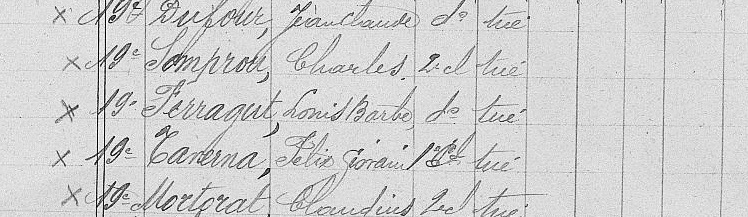 x 19e Dufour, Jean Claude do tué
x 19e Sompron, Charles. 2cl tué
x 19e Ferragut, Louis Barbe, do tué
x 19e Taverna, Félix 1e Cl tué
x 19e Mortorat, Claudius 2cl tué